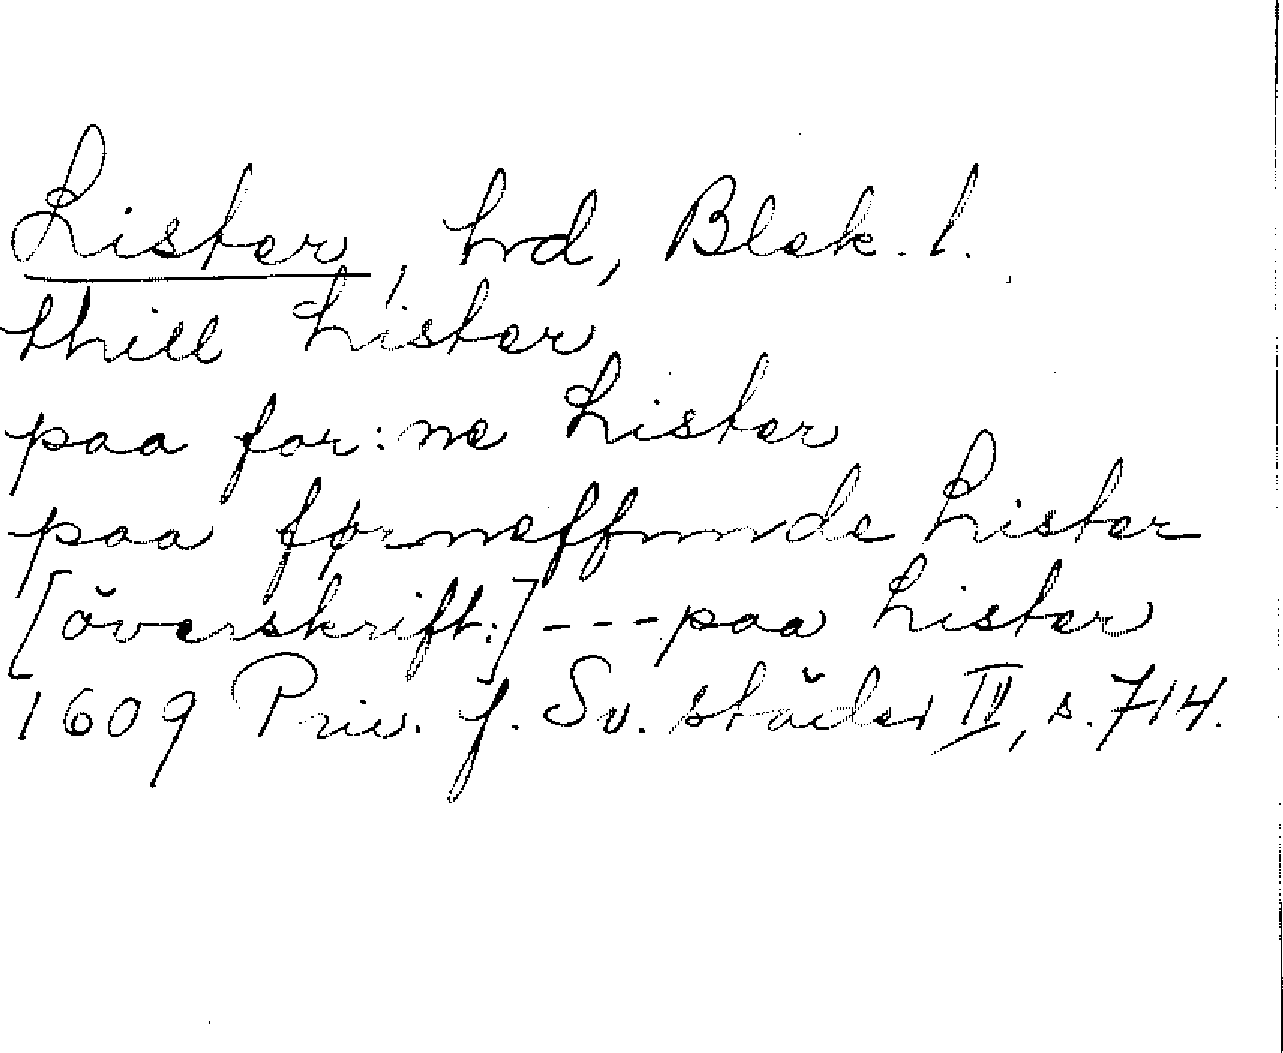 Lister, hrd, Blek. l.
thill Lister
paa for:ne Lister
paa førneffnnde Lister
[överskrift:] --- paa Lister
1609 Priv. f. Sv. städer IV, s. 714.